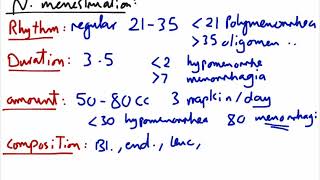 N. menestruation:
Rhythm: regular 21-35 <21 Polymenorrhea
>35 oligomen ..
Duration: 3-5 <2 hypomenorrhe
>7 menorrhagia
amount: 50-80cc 3 napkin/day
<30 hypomenorrhea 80 menorrhagi
composition: Bl., end., leuc,